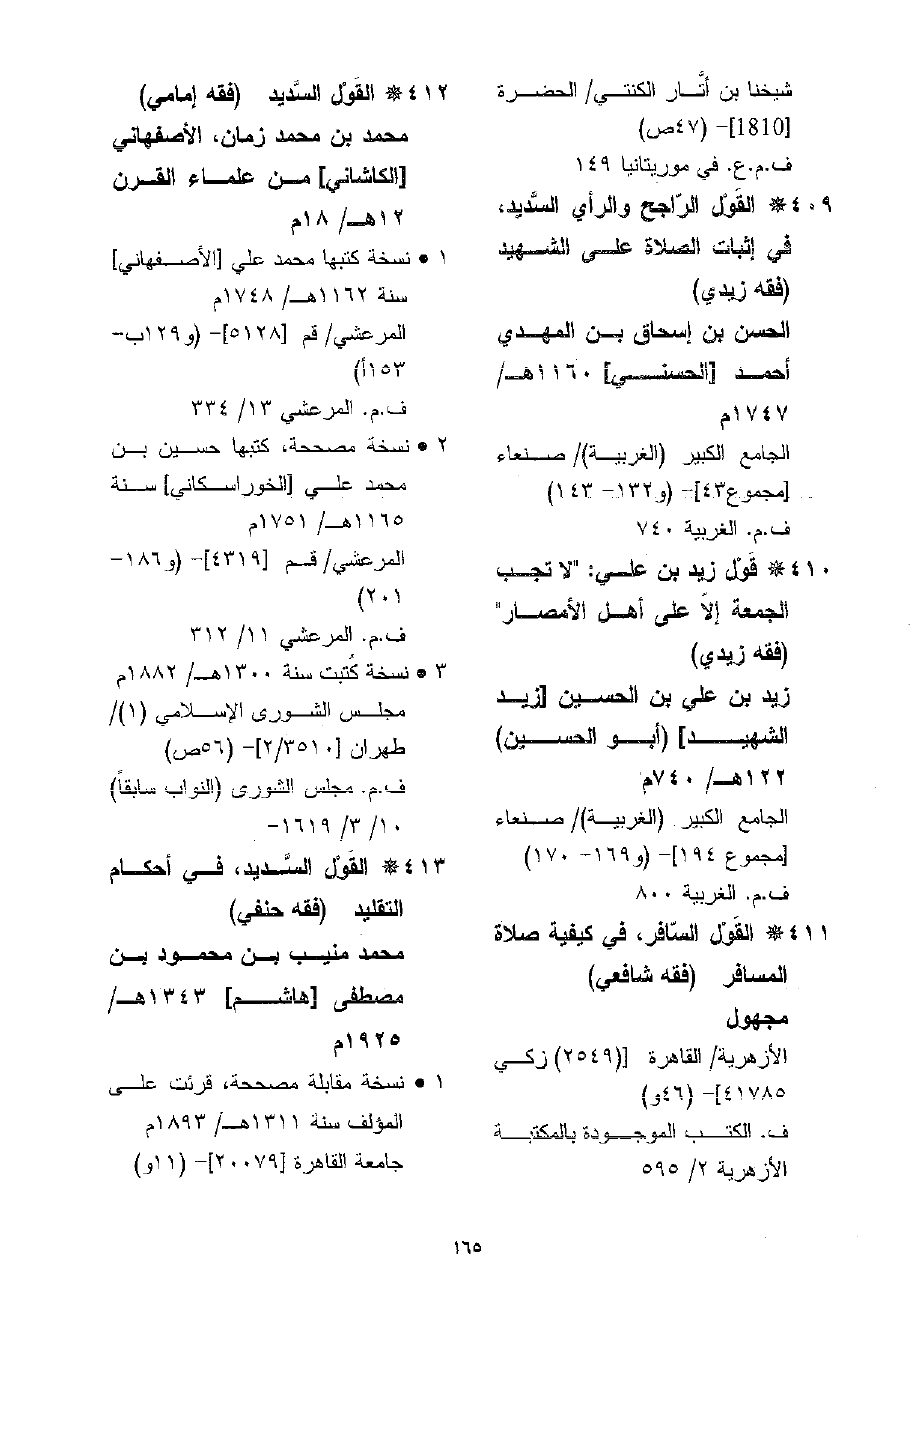 شيخنا بن أتَّــار الكنتــي/ الحضــرة
[1810]– (٤٧ص)
ف.م.ع. في موريتانيا ١٤٩
٤٠٩ * القَول الرّاجح والرأي السَّديد،
في إثبات الصلاة علــى الشــهيد
(فقه زيدي)
الحسن بن إسحاق بــن المهــدي
أحمــد [الحسنــي] ١١٦٠هــ/
١٧٤٧م
الجامع الكبير (الغربيــة)/ صــنعاء
[مجموع٤٣]– (و١٣٢– ١٤٣)
ف.م. الغربية ٧٤٠
٤١٠ * قَولُ زيد بن علــي: "لا تجــب
الجمعة إلاّ على أهــل الأمصــار"
(فقه زيدي)
زيد بن علي بن الحســين [زيــد
الشهيــد] (أبــو الحســين)
١٢٢هــ/ ٧٤٠م
الجامع الكبير (الغربيــة)/ صــنعاء
[مجموع ١٩٤]– (و١٦٩– ١٧٠)
ف.م. الغربية ٨٠٠
٤١١ * القَولُ السّافر، في كيفية صلاة
المسافر (فقه شافعي)
مجهول
الأزهرية/ القاهرة [(٢٥٤٩) زكــي
٤١٧٨٥]– (٤٦و)
ف. الكتــب الموجــودة بالمكتبــة
الأزهرية ٢/ ٥٩٥
٤١٢ * القَولُ السَّديد (فقه إمامي)
محمد بن محمد زمان، الأصفهاني
[الكاشاني] مــن علمــاء القــرن
١٢هــ/ ١٨م
١ • نسخة كتبها محمد علي [الأصــفهاني]
سنة ١١٦٢هــ/ ١٧٤٨م
المرعشي/ قم [٥١٢٨]– (و١٢٩ب–
١٥٣أ)
ف.م. المرعشي ١٣/ ٣٣٤
٢ • نسخة مصححة، كتبها حســين بــن
محمد علــي [الخوراســكاني] ســنة
١١٦٥هــ/ ١٧٥١م
المرعشي/ قــم [٤٣١٩]– (و١٨٦–
٢٠١)
ف.م. المرعشي ١١/ ٣١٢
٣ • نسخة كُتبت سنة ١٣٠٠هــ/ ١٨٨٢م
مجلــس الشــورى الإســلامي (١)/
طهران [٢/٣٥١٠]– (٥٦ص)
ف.م. مجلس الشورى (النواب سابقاً)
١٠/ ٣/ ١٦١٩–
٤١٣ * القَولُ السَّــديد، فــي أحكــام
التقليد (فقه حنفي)
محمد منيــب بــن محمــود بــن
مصطفى [هاشــم] ١٣٤٣هــ/
١٩٢٥م
١ • نسخة مقابلة مصححة، قرئت علــى
المؤلف سنة ١٣١١هــ/ ١٨٩٣م
جامعة القاهرة [٢٠٠٧٩]– (١١و)
١٦٥